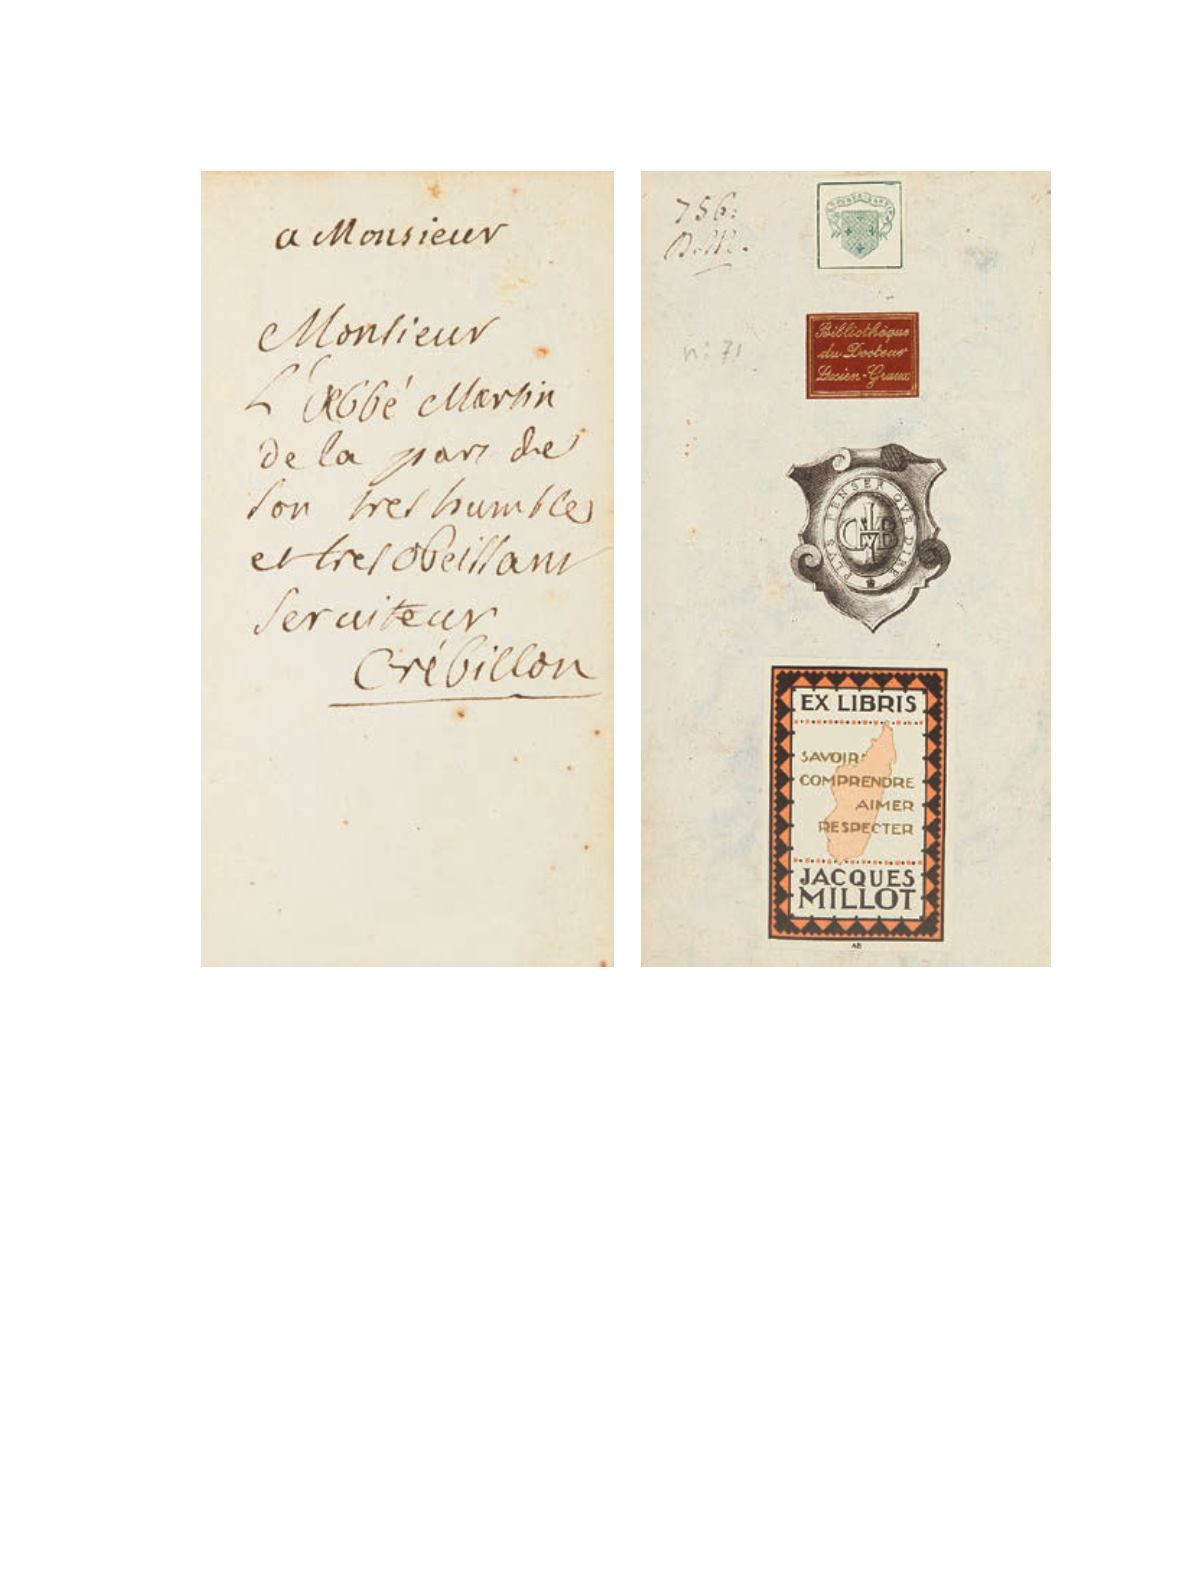 a Monsieur
Monsieur
L'abbé Martin
de la part de
son tres humble
et tres obeissant
serviteur
Crébillon
756:
n: 71
Bibliothèque
du Docteur
Lucien-Graux
PLVS PENSER QVE DIRE
EX LIBRIS
SAVOIR
COMPRENDRE
AIMER
RESPECTER
JACQUES
MILLOT
AB